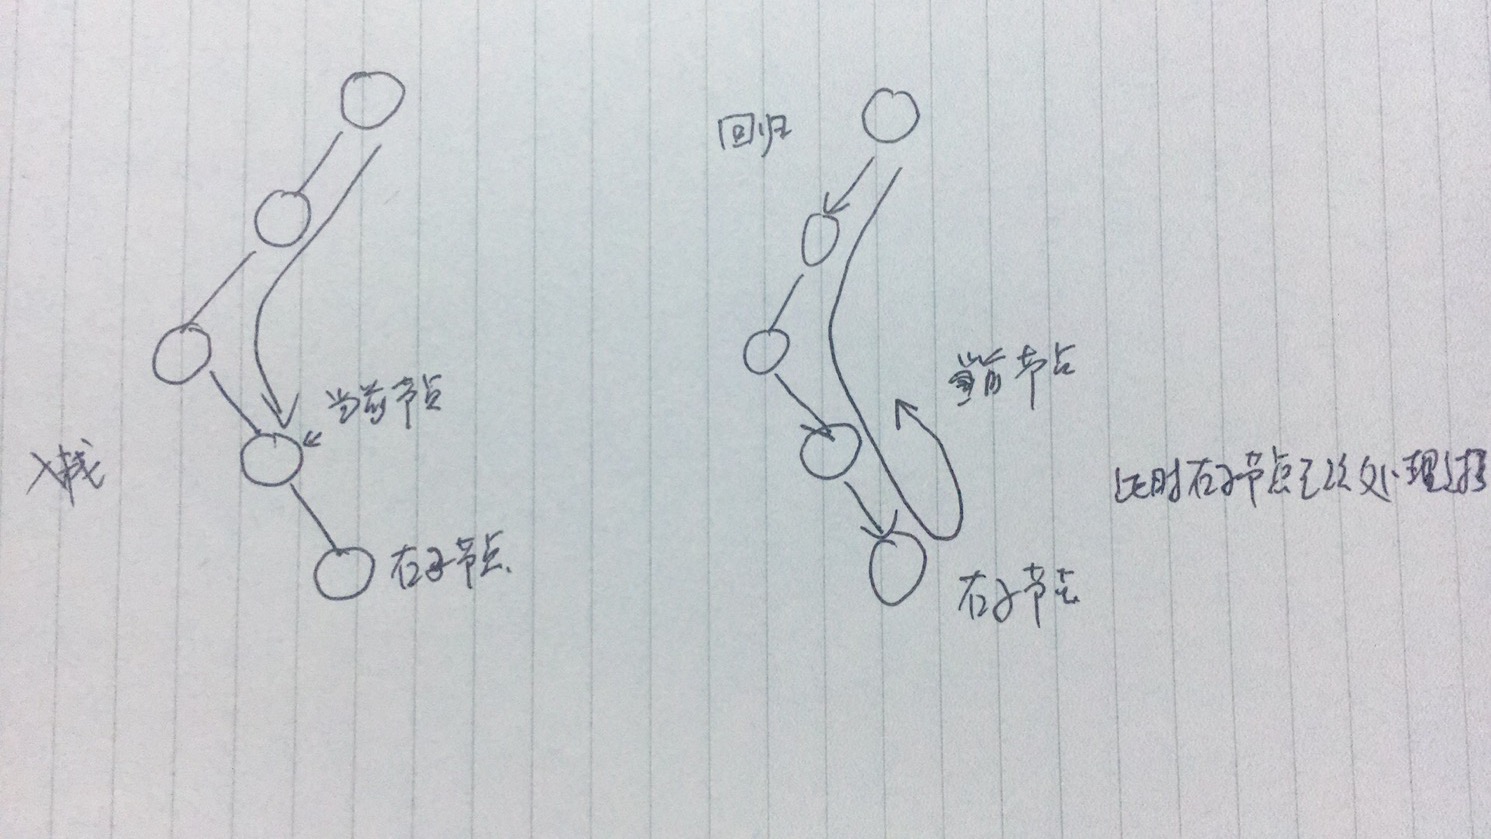 当前节点
入栈
右子节点
回归
当前节点
右子节点
此时右子节点已经处理过